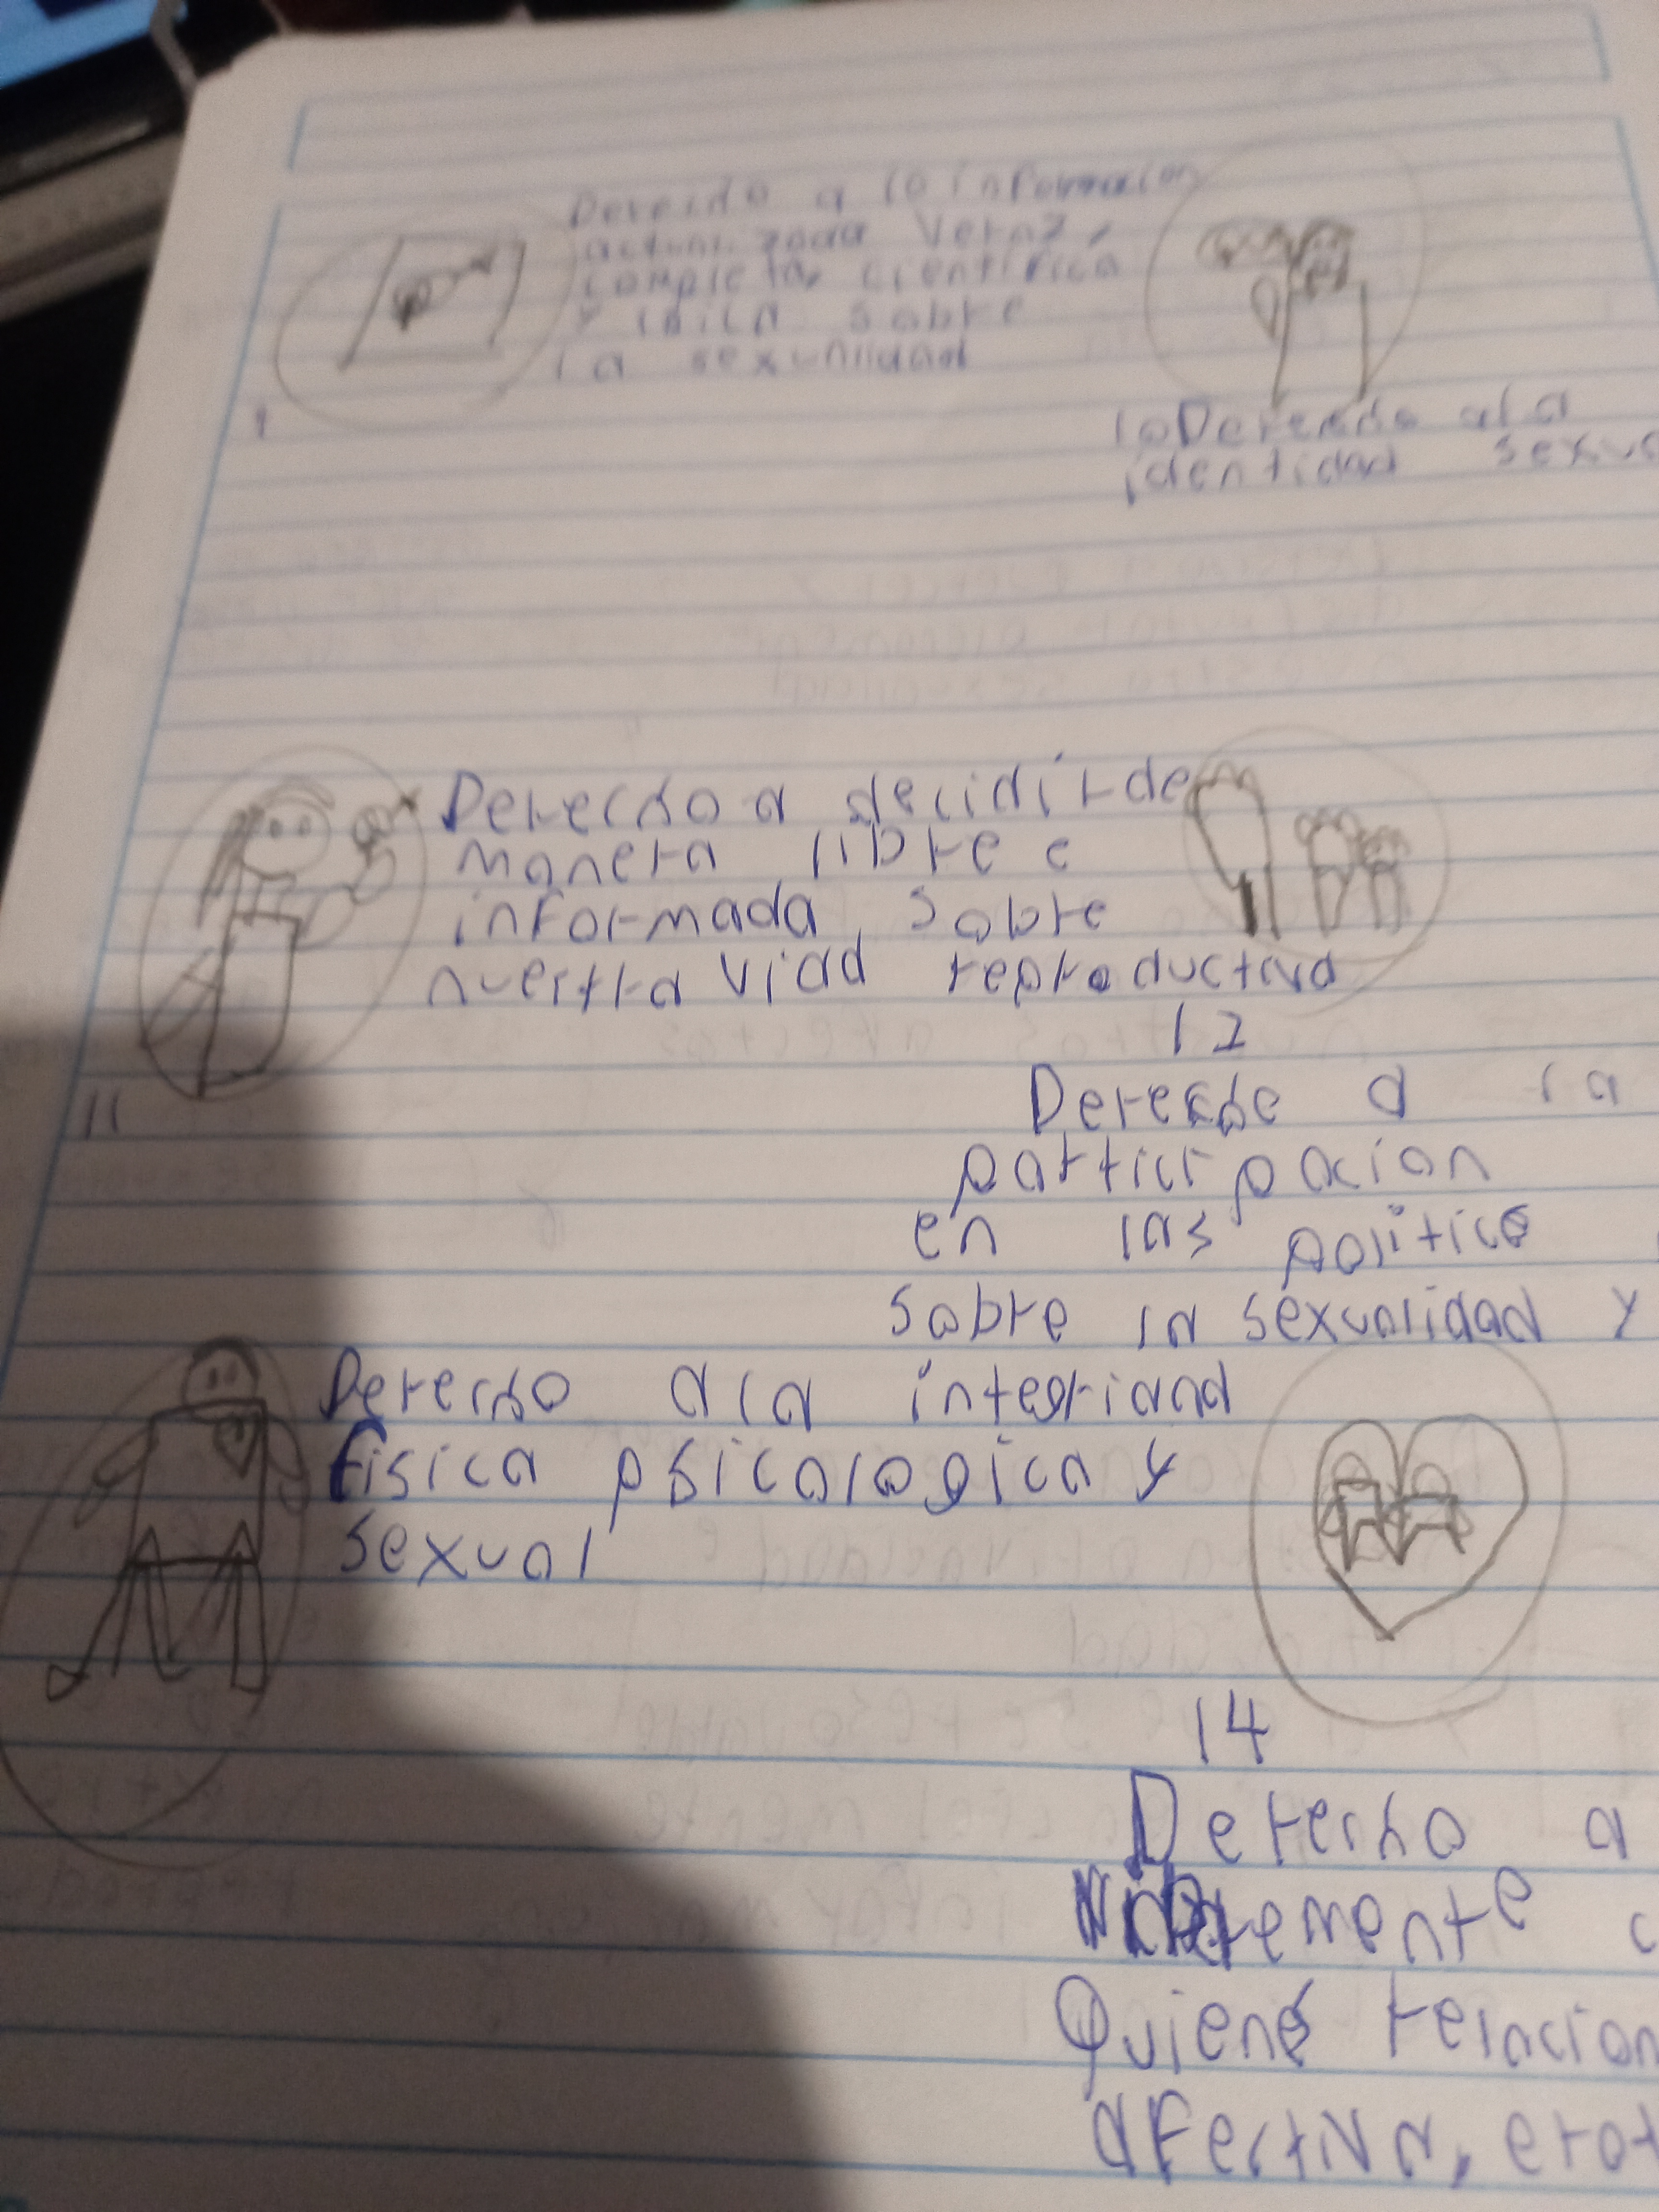 Derecho a la informacion
actualizada Veraz,
completa, cientifica
y laica sobre
la sexualidad
10 Derecho a la
identidad sexua
Derecho a decidir de
manera libre e
informada sobre
nuestra viad reproductiva
11
12
Derecho a la
participacion
en las politica
sobre la sexualidad y
Derecho a la integridad
fisica psicologica y
sexual
14
Derecho a
libremente c
Quienes relacion
afectiva, erot